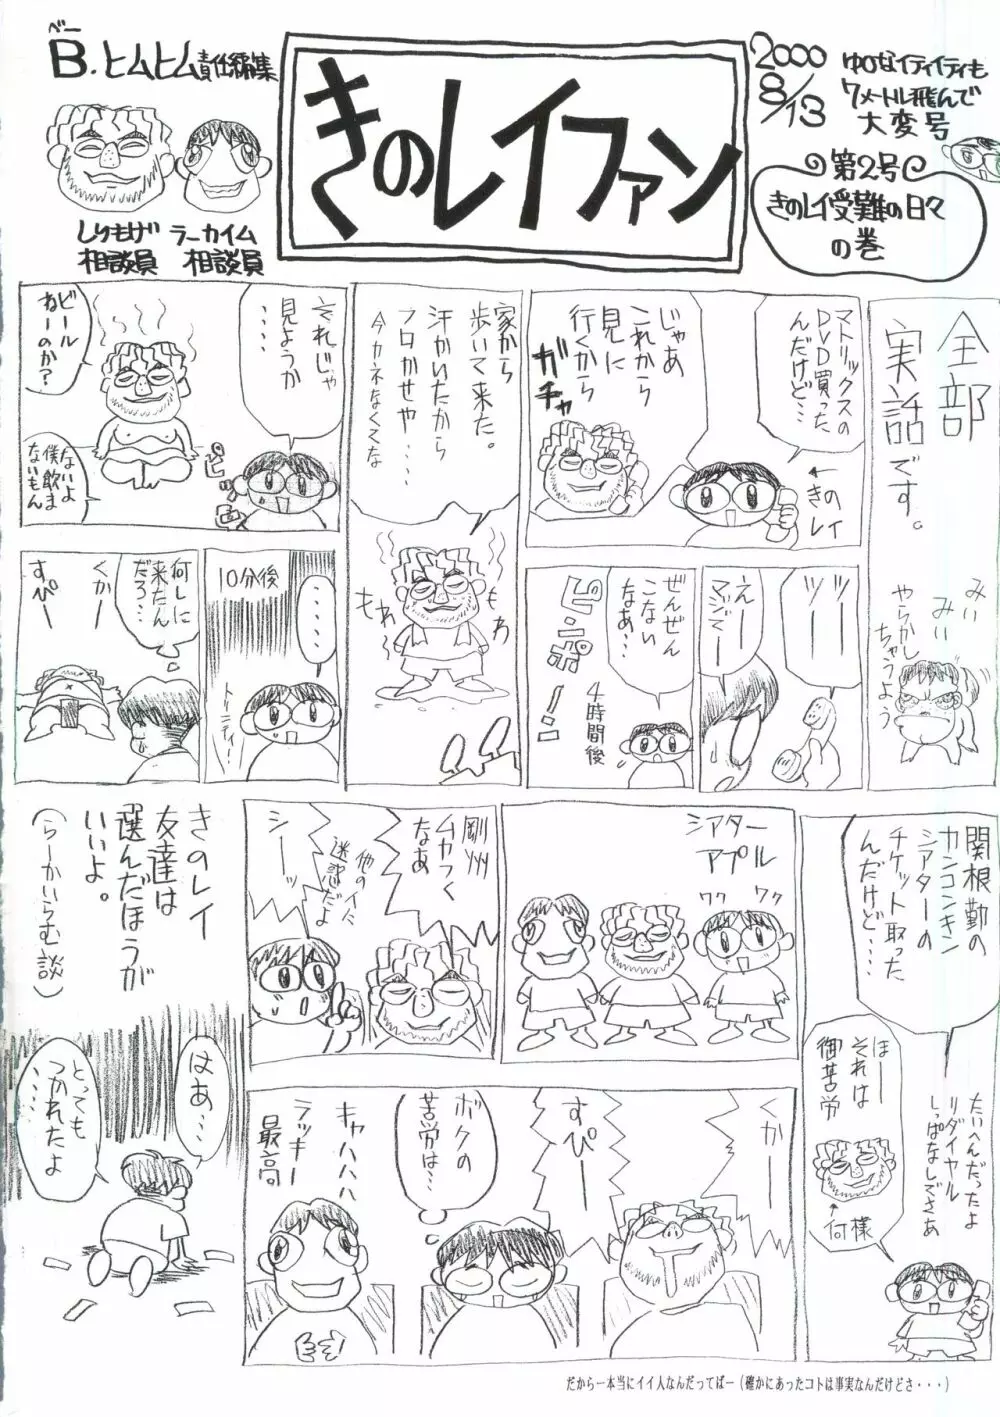 べー
B.ヒムヒム責任編集
しりもげ
相談員
ラーカイム
相談員
きのレイファン
2000
8/13
ゆひなイティイティも
7メートル飛んで
大変号
第2号
きのレイ受難の日々
の巻
全部
実話です。
みい
みい
やらかし
ちゃうよう
マトリックスの
DVD買った
んだけど…
←きの
レイ
じゃあ
これから
見に
行くから
ガチャ
ツーツー
えーー
マジでーー
ぜんぜん
こない
なあ…
4時間後
ピ・ポーン!
家から
歩いて来た。
汗かいたから
フロかせや・・・・
今カネなくてな
もわ
もわ
それじゃ
見ようか
・・・・
ピッ
ビール
ねーのか?
ないよ
僕飲ま
ないもん
・・・・・
10分後
トリニティー!
何しに
来たん
だろ…
くかー
すぴー
関根勤の
カンコンキン
シアターの
チケット取った
んだけど・・・・
たいへんだったよ
リダイヤル
しっぱなしでさあ
ほー
それは
御苦労
↑何様
シアター
アプル
ワク
ワク
剛州
ムカつく
なあ
シーッ
他の人に
迷惑だよ
くかーー
すぴーー
ボクの
苦労は…
キャハハハハ
ラッキー
最高
きのレイ
友達は
選んだほうが
いいよ。
(らーかいらむ談)
はあ…
とっても
つかれたよ
・・・・・
だからー本当にイイ人なんだってばー(確かにあったコトは事実なんだけどさ・・・)